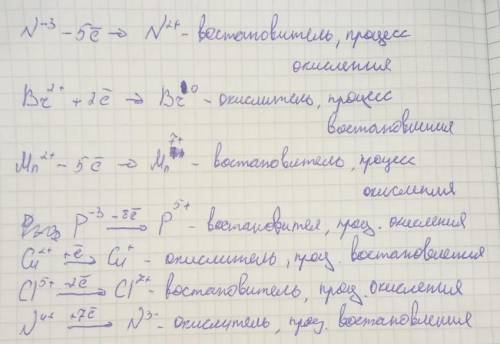 N⁻³ – 5ē → N²⁺ – востановитель, процесс
окисления
Br²⁺ + 2ē → Br⁰ – окислитель, процесс
востановления
Mn²⁺ – 5ē → Mn⁷⁺ – востановитель, процесс
окисления
P⁻³ –8ē→ P⁵⁺ – востановител, проц. окисления
Cu²⁺ +ē→ Cu⁺ – окислитель, проц. востановления
Cl⁵⁺ –2ē→ Cl⁷⁺ – востановитель, проц. окисления
N⁴⁺ +7ē→ N³⁻ – окислитель, проц. востановления